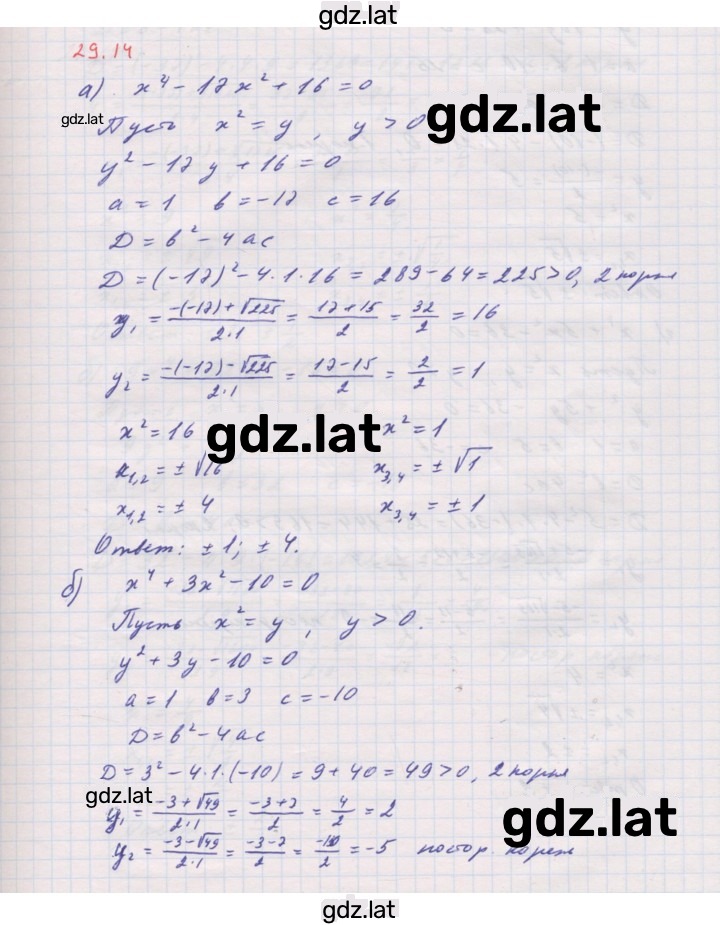 gdz.lat
29.14
а) x⁴ - 17x² + 16 = 0
gdz.lat
Пусть x² = y , y > 0
gdz.lat
y² - 17y + 16 = 0
a = 1 b = -17 c = 16
D = b² - 4ac
D = (-17)² - 4·1·16 = 289 - 64 = 225 > 0, 2 корня
y₁ = (-(-17)+√225)/(2·1) = (17+15)/2 = 32/2 = 16
y₂ = (-(-17)-√225)/(2·1) = (17-15)/2 = 2/2 = 1
x² = 16 x² = 1
gdz.lat
x₁,₂ = ±√16 x₃,₄ = ±√1
x₁,₂ = ± 4 x₃,₄ = ± 1
Ответ: ±1; ±4.
б) x⁴ + 3x² - 10 = 0
Пусть x² = y , y > 0.
y² + 3y - 10 = 0
a = 1 b = 3 c = -10
D = b² - 4ac
D = 3² - 4·1·(-10) = 9 + 40 = 49 > 0, 2 корня
gdz.lat
y₁ = (-3+√49)/(2·1) = (-3+7)/2 = 4/2 = 2
gdz.lat
y₂ = (-3-√49)/(2·1) = (-3-7)/2 = -10/2 = -5 постор. корень
gdz.lat